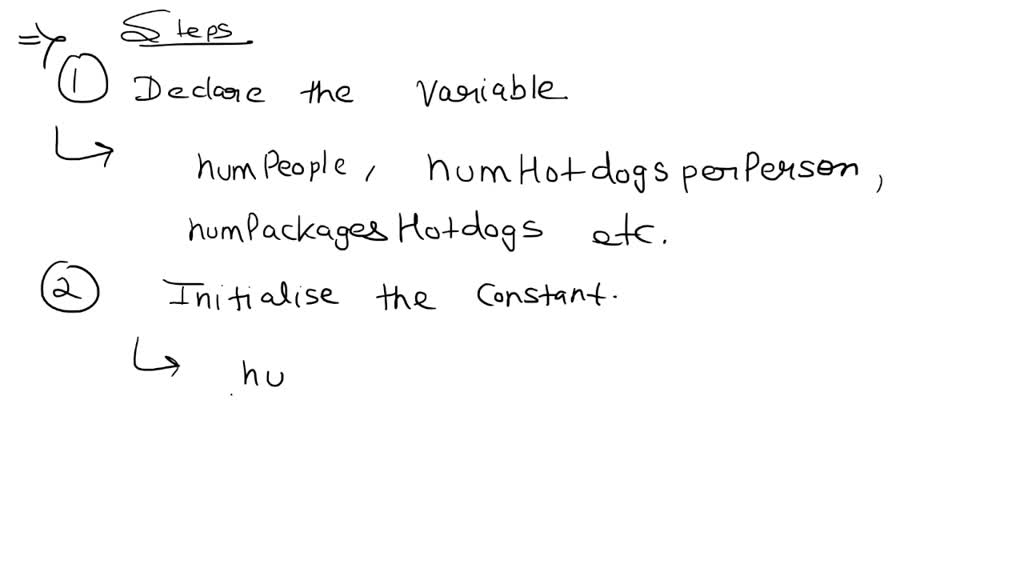 ⇒ Steps
① Declare the Variable
↳ numPeople, numHotdogsperPerson,
numPackagesHotdogs etc.
② Initialise the Constant.
↳ nu